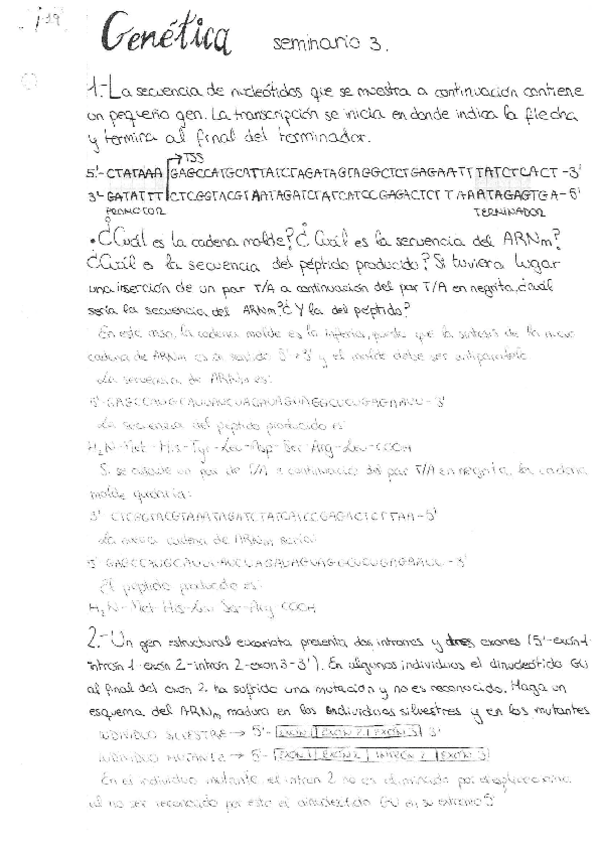 i-19
Genética seminario 3.
1.- La secuencia de nucleótidos que se muestra a continuación contiene
un pequeño gen. La transcripción se inicia en donde indica la flecha
y termina al final del terminador.
TSS
5'- CTATAAA GAGCCATGCATTATCTAGATAGTAGGCTCTGAGAATT TATCTCACT -3'
3'- GATATTT CTCGGTACGTAATAGATCTATCATCCGAGACTCTTAA ATAGAGTGA - 5'
PROMOTOR TERMINADOR
• ¿Cuál es la cadena molde? ¿Cuál es la secuencia del ARNm?
¿Cuál es la secuencia del péptido producido? Si tuviera lugar
una inserción de un par T/A a continuación del par T/A en negrita, ¿cuál
sería la secuencia del ARNm? ¿Y la del péptido?
En este caso, la cadena molde es la inferior, puesto que la síntesis de la nueva
cadena de ARNm es en sentido 5' 3' y el molde debe ser antiparalelo
La secuencia de ARNm es:
La secuencia del péptido producido es:
H2N-Met-His-Tyr-Leu-Asp-Ser-Arg-Leu-COOH
Si se añade un par de T/A a continuación del par T/A en negrita, la cadena
molde quedaría:
3' CTCGGTACGTAAATAGATCTATCATCCGAGACTCTTAA-5'
La nueva cadena de ARNm sería:
El péptido producido es:
H2N-Met-His-Leu COOH
2.- Un gen estructural eucariota presenta dos intrones y tres exones (5'-exón 1-
intrón 1-exón 2-intrón 2-exon 3-3'). En algunos individuos el dinucleótido GU
al final del exón 2 ha sufrido una mutación y no es reconocido. Haga un
esquema del ARNm maduro en los individuos silvestres y en los mutantes
INDIVIDUO SILVESTRE → 5'- EXON 1 | EXON 2 | EXON 3 3'
INDIVIDUO MUTANTE → 5- EXON 1 | EXON 2 | INTRON 2 | EXON 3
En el individuo mutante, el intrón 2 no es eliminado por
al no ser reconocido por este el dinucleótido GU en su extremo 5'